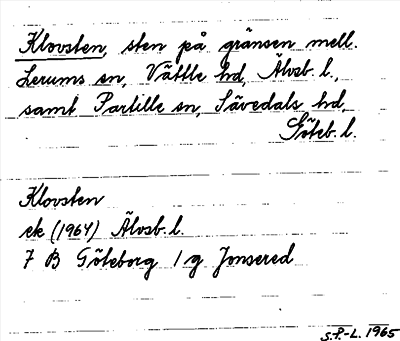 Klovsten, sten på gränsen mell.
Lerums sn, Vättle hd, Älvsb. l.,
samt Partille sn, Sävedals hd,
Göteb. l.
Klovsten
ek (1964) Älvsb. l.
7 B Göteborg 1 g Jonsered
S.P.-L. 1965